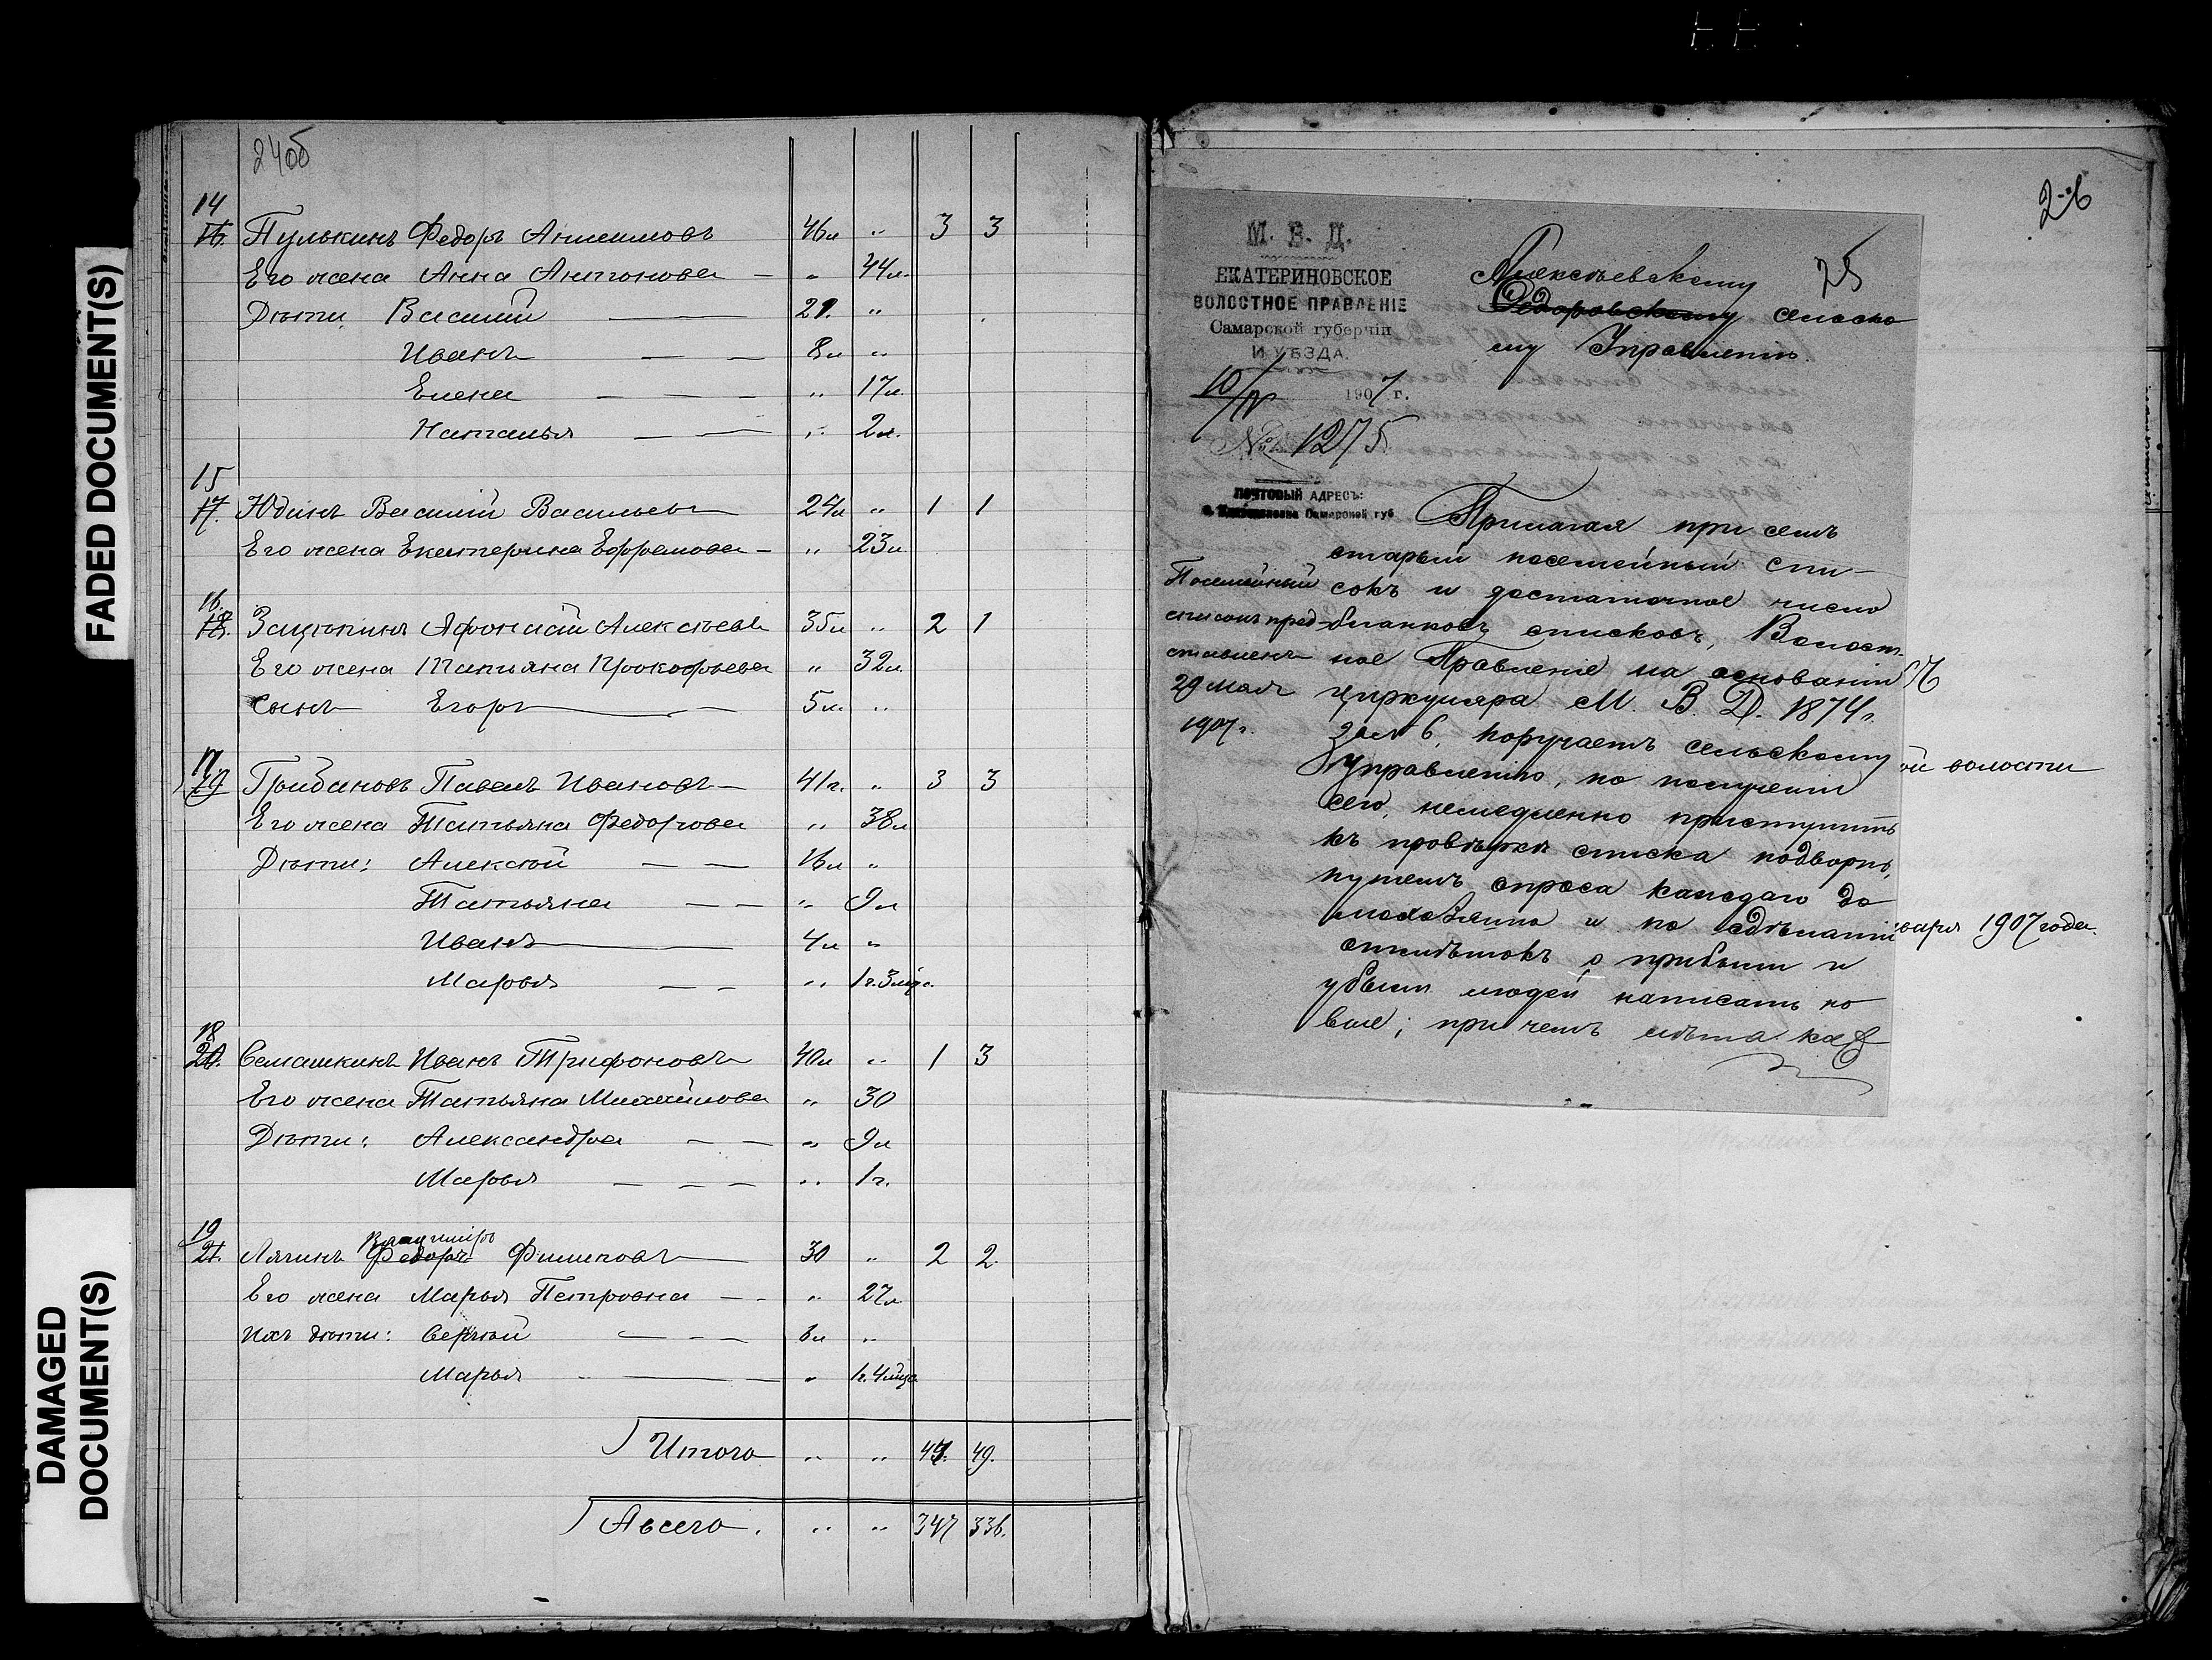 FADED DOCUMENT(S)
DAMAGED
DOCUMENT(S)
24об
14
16. Пулькинъ Федоръ Анисимовъ 46л " 3 3
Его жена Анна Антонова — " 44л.
Дѣти: Василий — 21. "
Иванъ — — 8л "
Елена — — — " 17л.
Наталья — — " 2л.
15
17. Юдинъ Василий Васильевъ 24л " 1 1
Его жена Екатерина Ефремова — " 23л
16.
18. Зацѣпинъ Афонасій Алексѣевъ 35л " 2 1
Его жена Татьяна Прокофьева " 32л.
Сынъ Егоръ — 5л. "
17
19 Грибановъ Павелъ Ивановъ — 41г. " 3 3
Его жена Татьяна Федорова " 38л
Дѣти: Алексѣй — — 16л "
Татьяна — — " 9л
Иванъ — 4л "
Марья — — " 1г. 3мѣс.
18
20. Семашкинъ Иванъ Трифоновъ 40л " 1 3
Его жена Татьяна Михайлова " 30
Дѣти: Александра — — " 9л
Марья — — — " 1г.
19
Владимиръ
21. Лячинъ Федоръ Филиповъ — 30 " 2 2.
Его жена Марья Петровна — - " 27л
Ихъ дѣти: Сергѣй — — — 6л "
Марья — " 1г. 4мѣс
Итого " " 47. 49.
А всего. " " 347 336.
26
М. В. Д.
ЕКАТЕРИНОВСКОЕ
ВОЛОСТНОЕ ПРАВЛЕНІЕ
Самарской губерніи
И УѢЗДА.
10/IV 1907 г.
№ 1275
ПОЧТОВЫЙ АДРЕСЪ:
с. Екатериновка Самарской губ.
25
Алексѣевскому
Федоровскому сельско
му Управленію.
Прилагая при семъ
старый посемейный спи-
сокъ и достаточное число
бланковъ списковъ, Волост-
ное Правленіе на основаніи
циркуляра М. В. Д. 1874г.
за № 6, поручаетъ сельскому
Управленію, по полученіи
сего, немедленно приступить
къ провѣркѣ списка подворно,
путемъ опроса каждаго до
мохозяина и по сдѣланіи
отмѣтокъ о прибыли и
убыли людей написать но
вые; при чемъ лѣта каж
Посемейный
списокъ пред-
ставленъ
29 мая
1907г.
ой волости
варя 1907 года.